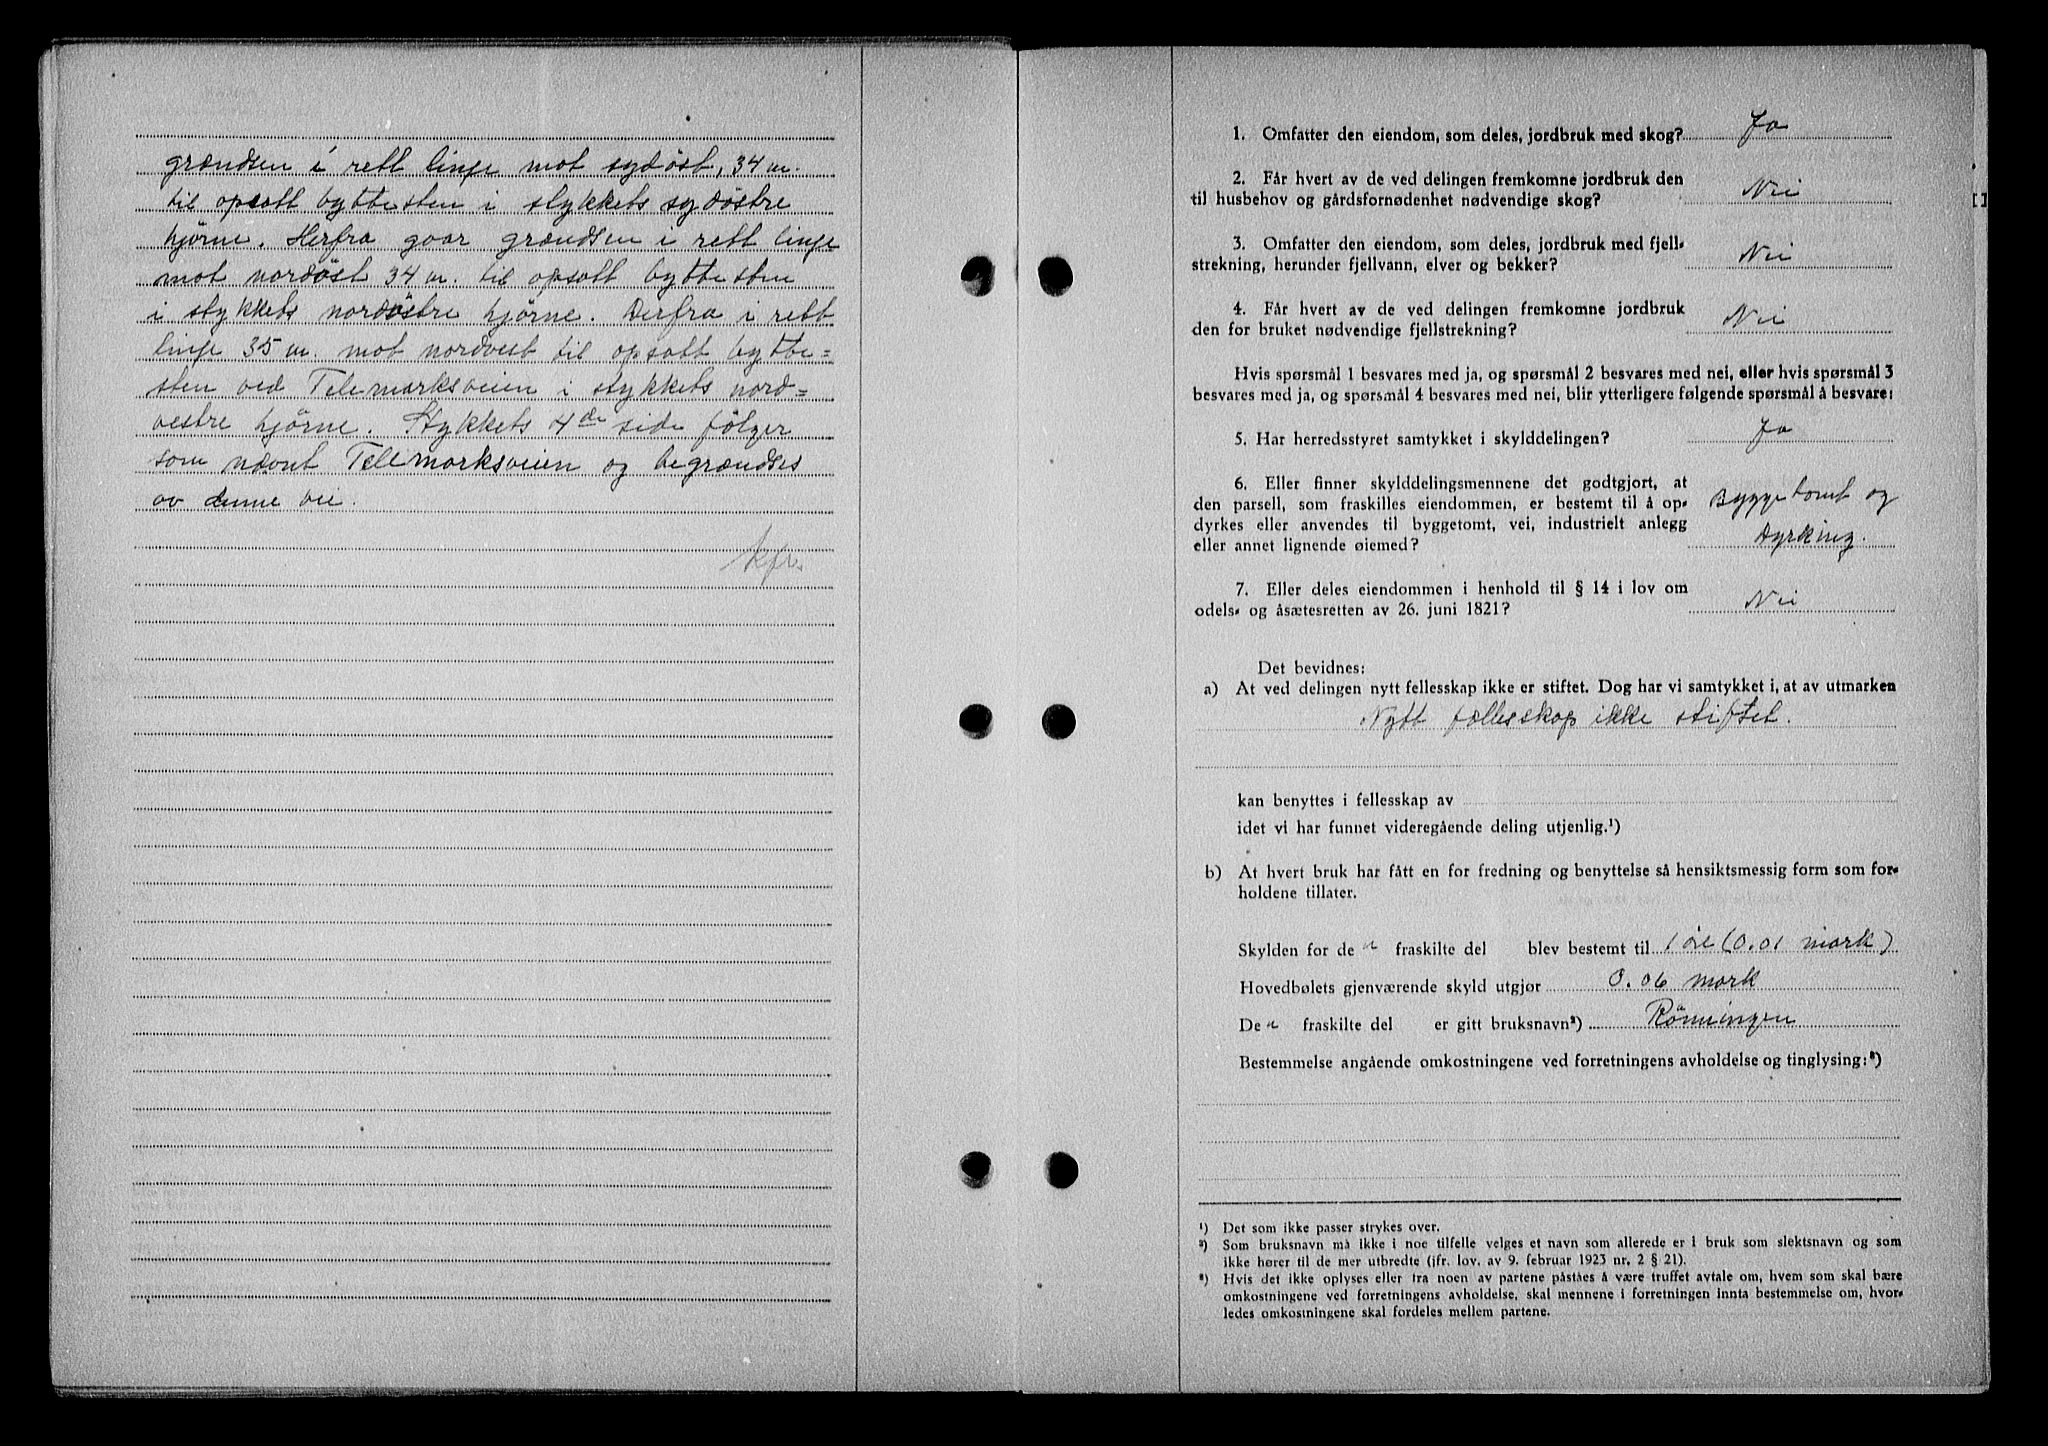 grændsen i rett linje mot sydøst, 34 m.
til opsatt byttesten i stykkets sydøstre
hjørne. Herfra gaar grændsen i rett linje
mot nordøst 34 m. til opsatt byttesten
i stykkets nordøstre hjørne. Derfra i rett
linje 35 m. mot nordvest til opsatt bytte=
sten ved Telemarksveien i stykkets nord=
vestre hjørne. Stykkets 4de side følger
som nævnt Telemarksveien og begrændses
av denne vei.
1. Omfatter den eiendom, som deles, jordbruk med skog? Ja
2. Får hvert av de ved delingen fremkomne jordbruk den
til husbehov og gårdsfornødenhet nødvendige skog? Nei
3. Omfatter den eiendom, som deles, jordbruk med fjell-
strekning, herunder fjellvann, elver og bekker? Nei
4. Får hvert av de ved delingen fremkomne jordbruk
den for bruket nødvendige fjellstrekning? Nei
Hvis spørsmål 1 besvares med ja, og spørsmål 2 besvares med nei, eller hvis spørsmål 3
besvares med ja, og spørsmål 4 besvares med nei, blir ytterligere følgende spørsmål å besvare:
5. Har herredsstyret samtykket i skylddelingen? Ja
6. Eller finner skylddelingsmennene det godtgjort, at
den parsell, som fraskilles eiendommen, er bestemt til å op-
dyrkes eller anvendes til byggetomt, vei, industrielt anlegg
eller annet lignende øiemed? Byggetomt og
Dyrking.
7. Eller deles eiendommen i henhold til § 14 i lov om
odels- og åsætesretten av 26. juni 1821? Nei
Det bevidnes:
a) At ved delingen nytt fellesskap ikke er stiftet. Dog har vi samtykket i, at av utmarken
Nytt fællesskap ikke stiftet.
kan benyttes i fellesskap av
idet vi har funnet videregående deling utjenlig.¹)
b) At hvert bruk har fått en for fredning og benyttelse så hensiktsmessig form som for-
holdene tillater.
Skylden for de n fraskilte del blev bestemt til 1 øre (0.01 mark)
Hovedbølets gjenværende skyld utgjør 0.06 mark
De n fraskilte del er gitt bruksnavn²) Rønningen
Bestemmelse angående omkostningene ved forretningens avholdelse og tinglysing:³)
¹) Det som ikke passer strykes over.
²) Som bruksnavn må ikke i noe tilfelle velges et navn som allerede er i bruk som slektsnavn og som
ikke hører til de mer utbredte (jfr. lov. av 9. februar 1923 nr. 2 § 21).
³) Hvis det ikke oplyses eller fra noen av partene påståes å være truffet avtale om, hvem som skal bære
omkostningene ved forretningens avholdelse, skal mennene i forretningen innta bestemmelse om, hvor-
ledes omkostningene skal fordeles mellem partene.